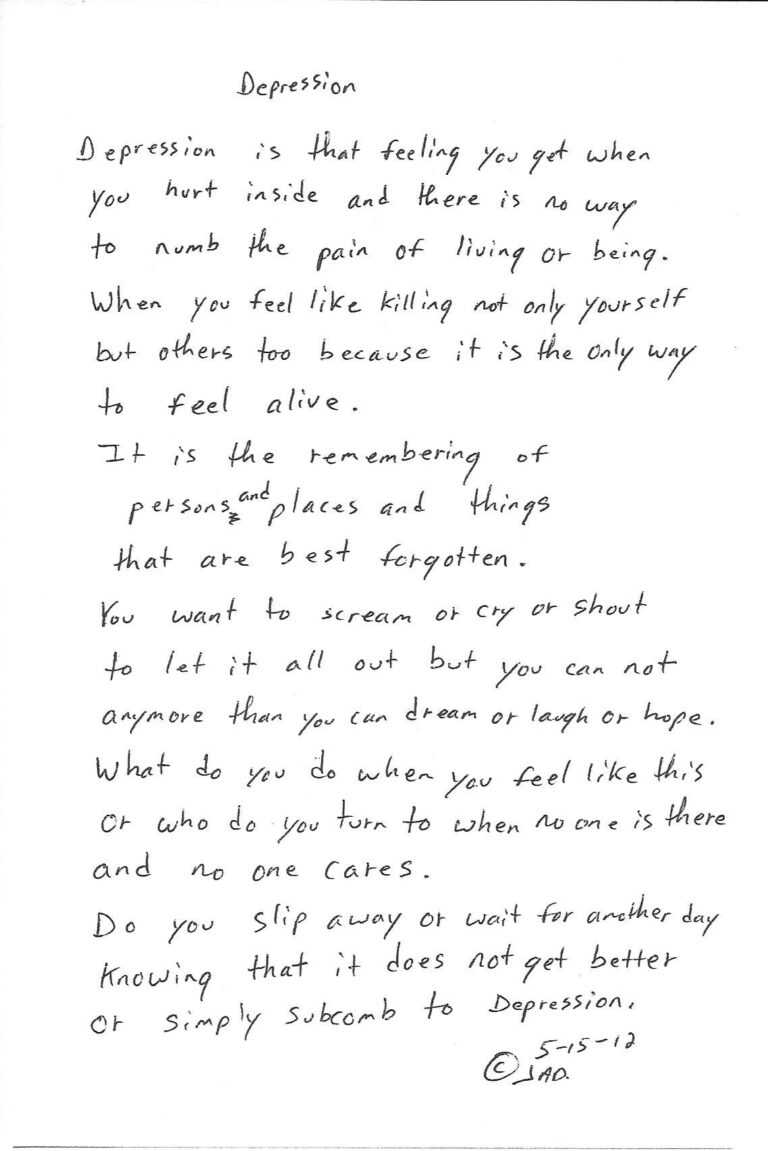 Depression
Depression is that feeling you get when
you hurt inside and there is no way
to numb the pain of living or being.
When you feel like killing not only yourself
but others too because it is the only way
to feel alive.
It is the remembering of
persons, and places and things
that are best forgotten.
You want to scream or cry or shout
to let it all out but you can not
anymore than you can dream or laugh or hope.
What do you do when you feel like this
or who do you turn to when no one is there
and no one cares.
Do you slip away or wait for another day
Knowing that it does not get better
or simply subcomb to Depression.
5-15-12
© JAO.